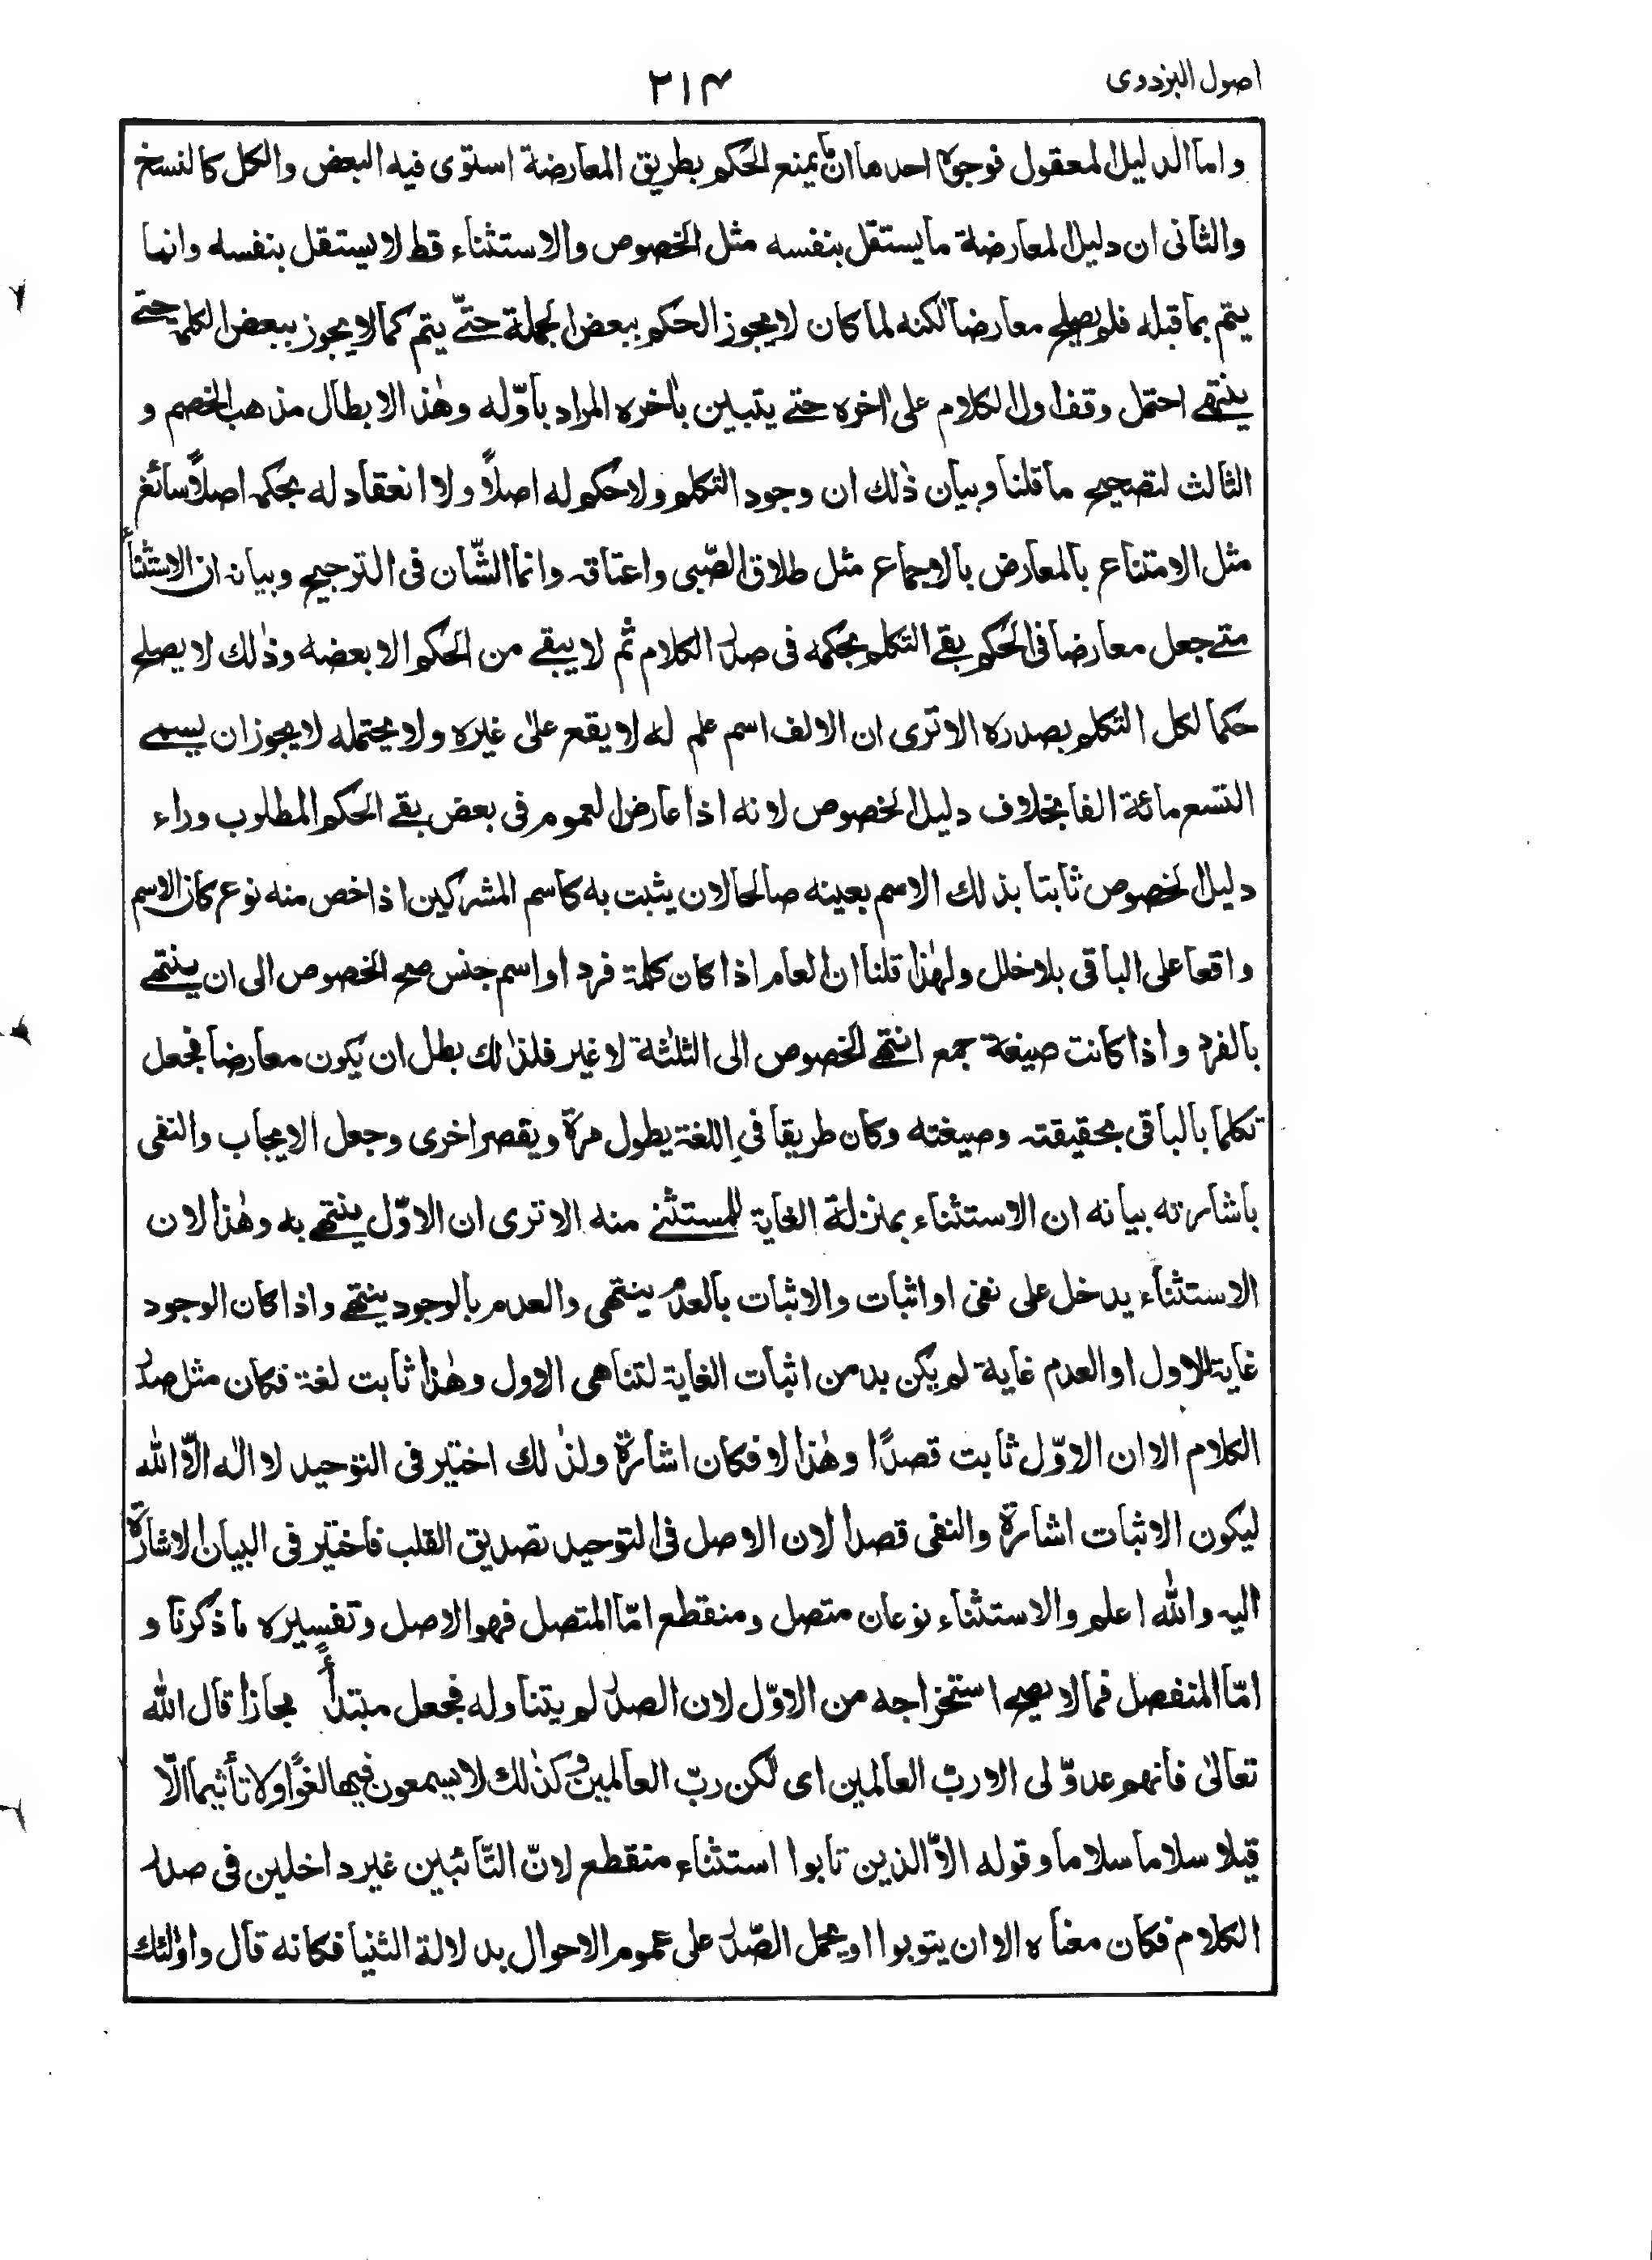 اصول البزدوی
۲۱۴
واما الدلیل المعقول فوجوه احدها ان ما یمنع الحکم بطریق المعارضة استوی فیه البعض والکل کالنسخ
والثانی ان دلیل المعارضة ما یستقل بنفسه مثل الخصوص والاستثناء قط لا یستقل بنفسه وانما
یتم بما قبله فلم یصلح معارضا لکنه لما کان لا یجوز الحکم ببعض الجملة حتّے یتم کما لا یجوز ببعض الکلمة حتے
ینتهے احتمل وقف اول الکلام علی اٰخره حتے یتبین باٰخره المراد باوّله وهٰذا لابطال مذهب الخصم و
الثالث لتصحیح ما قلنا وبیان ذٰلك ان وجود التکلم ولا حکم له اصلاً ولا انعقاد له بحکمه اصلاً سائغ
مثل الامتناع بالمعارض بالاجماع مثل طلاق الصّبی واعتاقه وانما الشّان فی الترجیح وبیانه ان الاستثناء
متے جعل معارضا فی الحکم بقے التکلم بحکمه فی صدر الکلام ثم لا یبقے من الحکم الا بعضه وذٰلك لا یصلح
حکما لکل التکلم بصدره الا تری ان الالف اسم علم له لا یقع علی غیره ولا یحتمله لا یجوز ان یسمے
التسع مائة الفا بخلاف دلیل الخصوص لانه اذا عارض العموم فی بعض بقے الحکم المطلوب وراء
دلیل الخصوص ثابتا بذلك الاسم بعینه صالحا لان یثبت به کاسم المشرکین اذا خص منه نوع کان الاسم
واقعا علی الباقی بلا خلل ولهٰذا قلنا ان العام اذا کان کلمة فرد او اسم جنس صح الخصوص الی ان ینتهے
بالفرد واذا کانت صیغة جمع انتهے الخصوص الی الثلٰثة لا غیر فلذٰلك بطل ان یکون معارضا فجعل
تکلما بالباقی بحقیقته وصیغته وکان طریقا فی اللغة یطول مرة ویقصر اخری وجعل الایجاب والنفی
باشارته بیانه ان الاستثناء بمنزلة الغایة للمستثنے منه الا تری ان الاوّل ینتهے به وهٰذا لان
الاستثناء یدخل علی نفی او اثبات والاثبات بالعدم ینتهی والعدم بالوجود ینتهے واذا کان الوجود
غایة للاول او العدم غایة لم یکن بد من اثبات الغایة لتناهی الاول وهٰذا ثابت لغة فکان مثل صدر
الکلام الا ان الاوّل ثابت قصدًا وهٰذا لا فکان اشارة ولذٰلك اختیر فی التوحید لا الٰه الّا الله
لیکون الاثبات اشارة والنفی قصدا لان الاصل فی التوحید تصدیق القلب فاختیر فی البیان الاشارة
الیه والله اعلم والاستثناء نوعان متصل ومنقطع امّا المتصل فهو الاصل وتفسیره ما ذکرنا و
امّا المنفصل فما لا یصح استخراجه من الاوّل لان الصدر لم یتناوله فجعل مبتدأً مجازا قال الله
تعالیٰ فانهم عدوّ لی الا ربّ العالمین ای لکن ربّ العالمین وکذٰلك لا یسمعون فیها لغوًا ولا تأثیما الّا
قیلا سلاما سلاما وقوله الّا الذین تابوا استثناء منقطع لانّ التّائبین غیر داخلین فی صدر
الکلام فکان معناه الا ان یتوبوا او یحمل الصّدر علی عموم الاحوال بدلالة الثنیا فکانه قال واولٰئك